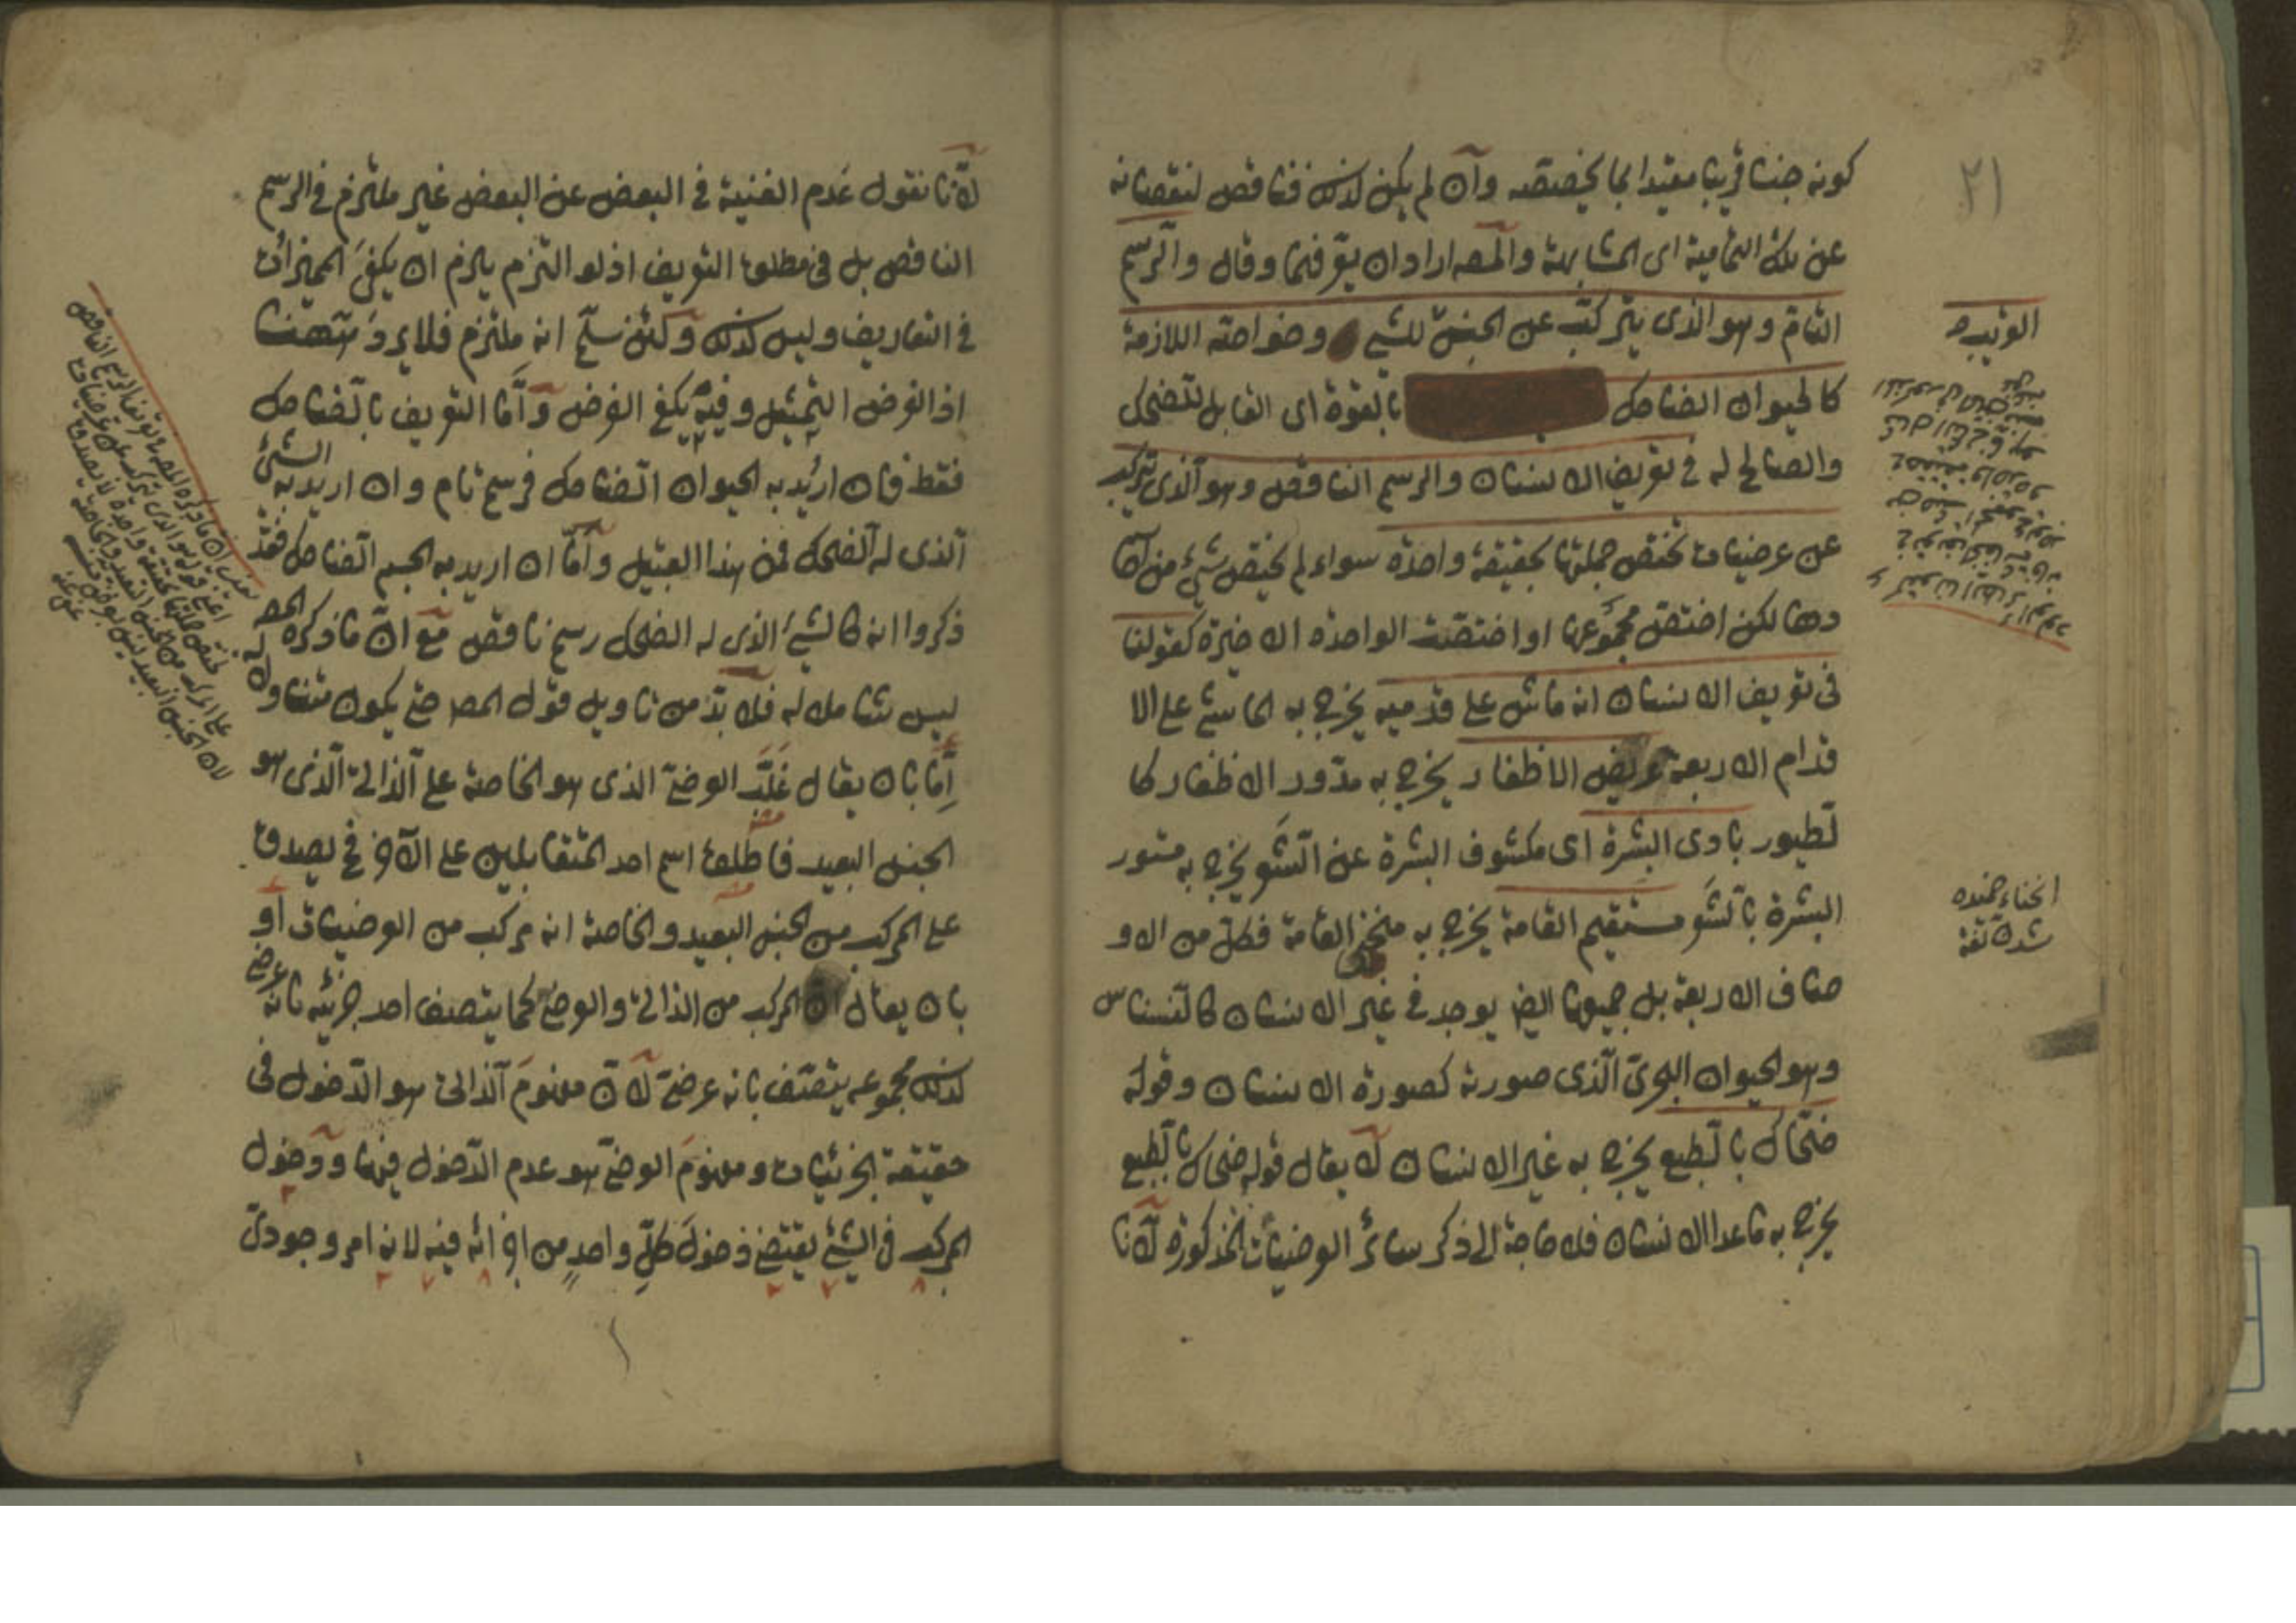 ٢١
كونه جنسا قريبا مقيدا بما يخصصه وان لم يكن كذلك فناقص لنقصانه
عن تلك التمامية اى المشابهة والمصـ اراد ان يعرفهما وقال والرسم
التام وهو الذى يتركب عن الجنس للشئ وخواصه اللازمة
كالحيوان الضاحك بالقوة اى القابل للضحك
والصالح له فى تعريف الانسان والرسم الناقص وهو الذى يتركب
عن عرضيات تختص جملتها بحقيقة واحدة سواء لم يختص شئ من آحا
دها لكن اختص مجموعها او اختصت الواحدة الاخيرة كقولنا
فى تعريف الانسان انه ماش على قدميه يخرج به الماشى على الا
قدام الاربعة عريض الاظفار يخرج به مدور الاظفار كا
لطيور بادى البشرة اى مكشوف البشرة عن الشعر يخرج به مستور
البشرة بالشعر مستقيم القامة يخرج به منحنى القامة فكل من الاو
صاف الاربعة بل جميعها ايضا يوجد فى غير الانسان كالنسناس
وهو الحيوان البحرى الذى صورته كصورة الانسان وقوله
ضحاك بالطبع يخرج به غير الانسان لا يقال قوله ضحاك بالطبع
يخرج به ماعدا الانسان فلا حاجة الى ذكر سائر العرضيات المذكورة لانا
القريب صـ
انحناء خميده
شدن لغة
لانا نقول عدم الغنية فى البعض عن البعض غير ملتزم فى الرسم
الناقص بل فى مطلق التعريف اذ لو التزم يلزم ان يكفى المميزات
فى التعاريف وليس كذلك ولئن سلم انه ملتزم فلا يرد ههنا
اذ الغرض التمثيل وفيه يكفى الفرض واما التعريف بالضاحك
فقط فان اريد به الحيوان الضاحك فرسم تام وان اريد به الشئ
الذى له الضحك فمن هذا القبيل واما ان اريد به الجسم الضاحك فقد
ذكروا انه كالشئ الذى له الضحك رسم ناقص مع ان ما ذكره المصـ
ليس شاملا له فلا بد من تاويل قول المصـ حتى يكون متناولا له
اما بان يقال غلب العرضى الذى هو الخاصة على الذاتى الذى هو
الجنس البعيد فاطلق اسم احد المتقابلين على الآخر فح يصدق
على المركب من الجنس البعيد والخاصة انه مركب من العرضيات او
بان يقال ان المركب من الذاتى والعرضى كما يتصف احد جزئيه بانه عرضى
كذلك مجموعه يتصف بانه عرضى لان مفهوم الذاتى هو الدخول فى
حقيقة الجزئيات ومفهوم العرضى هو عدم الدخول فيها ودخول
المركب فى الشئ يقتضى دخول كل واحد من اجزائه فيه لانه امر وجودى